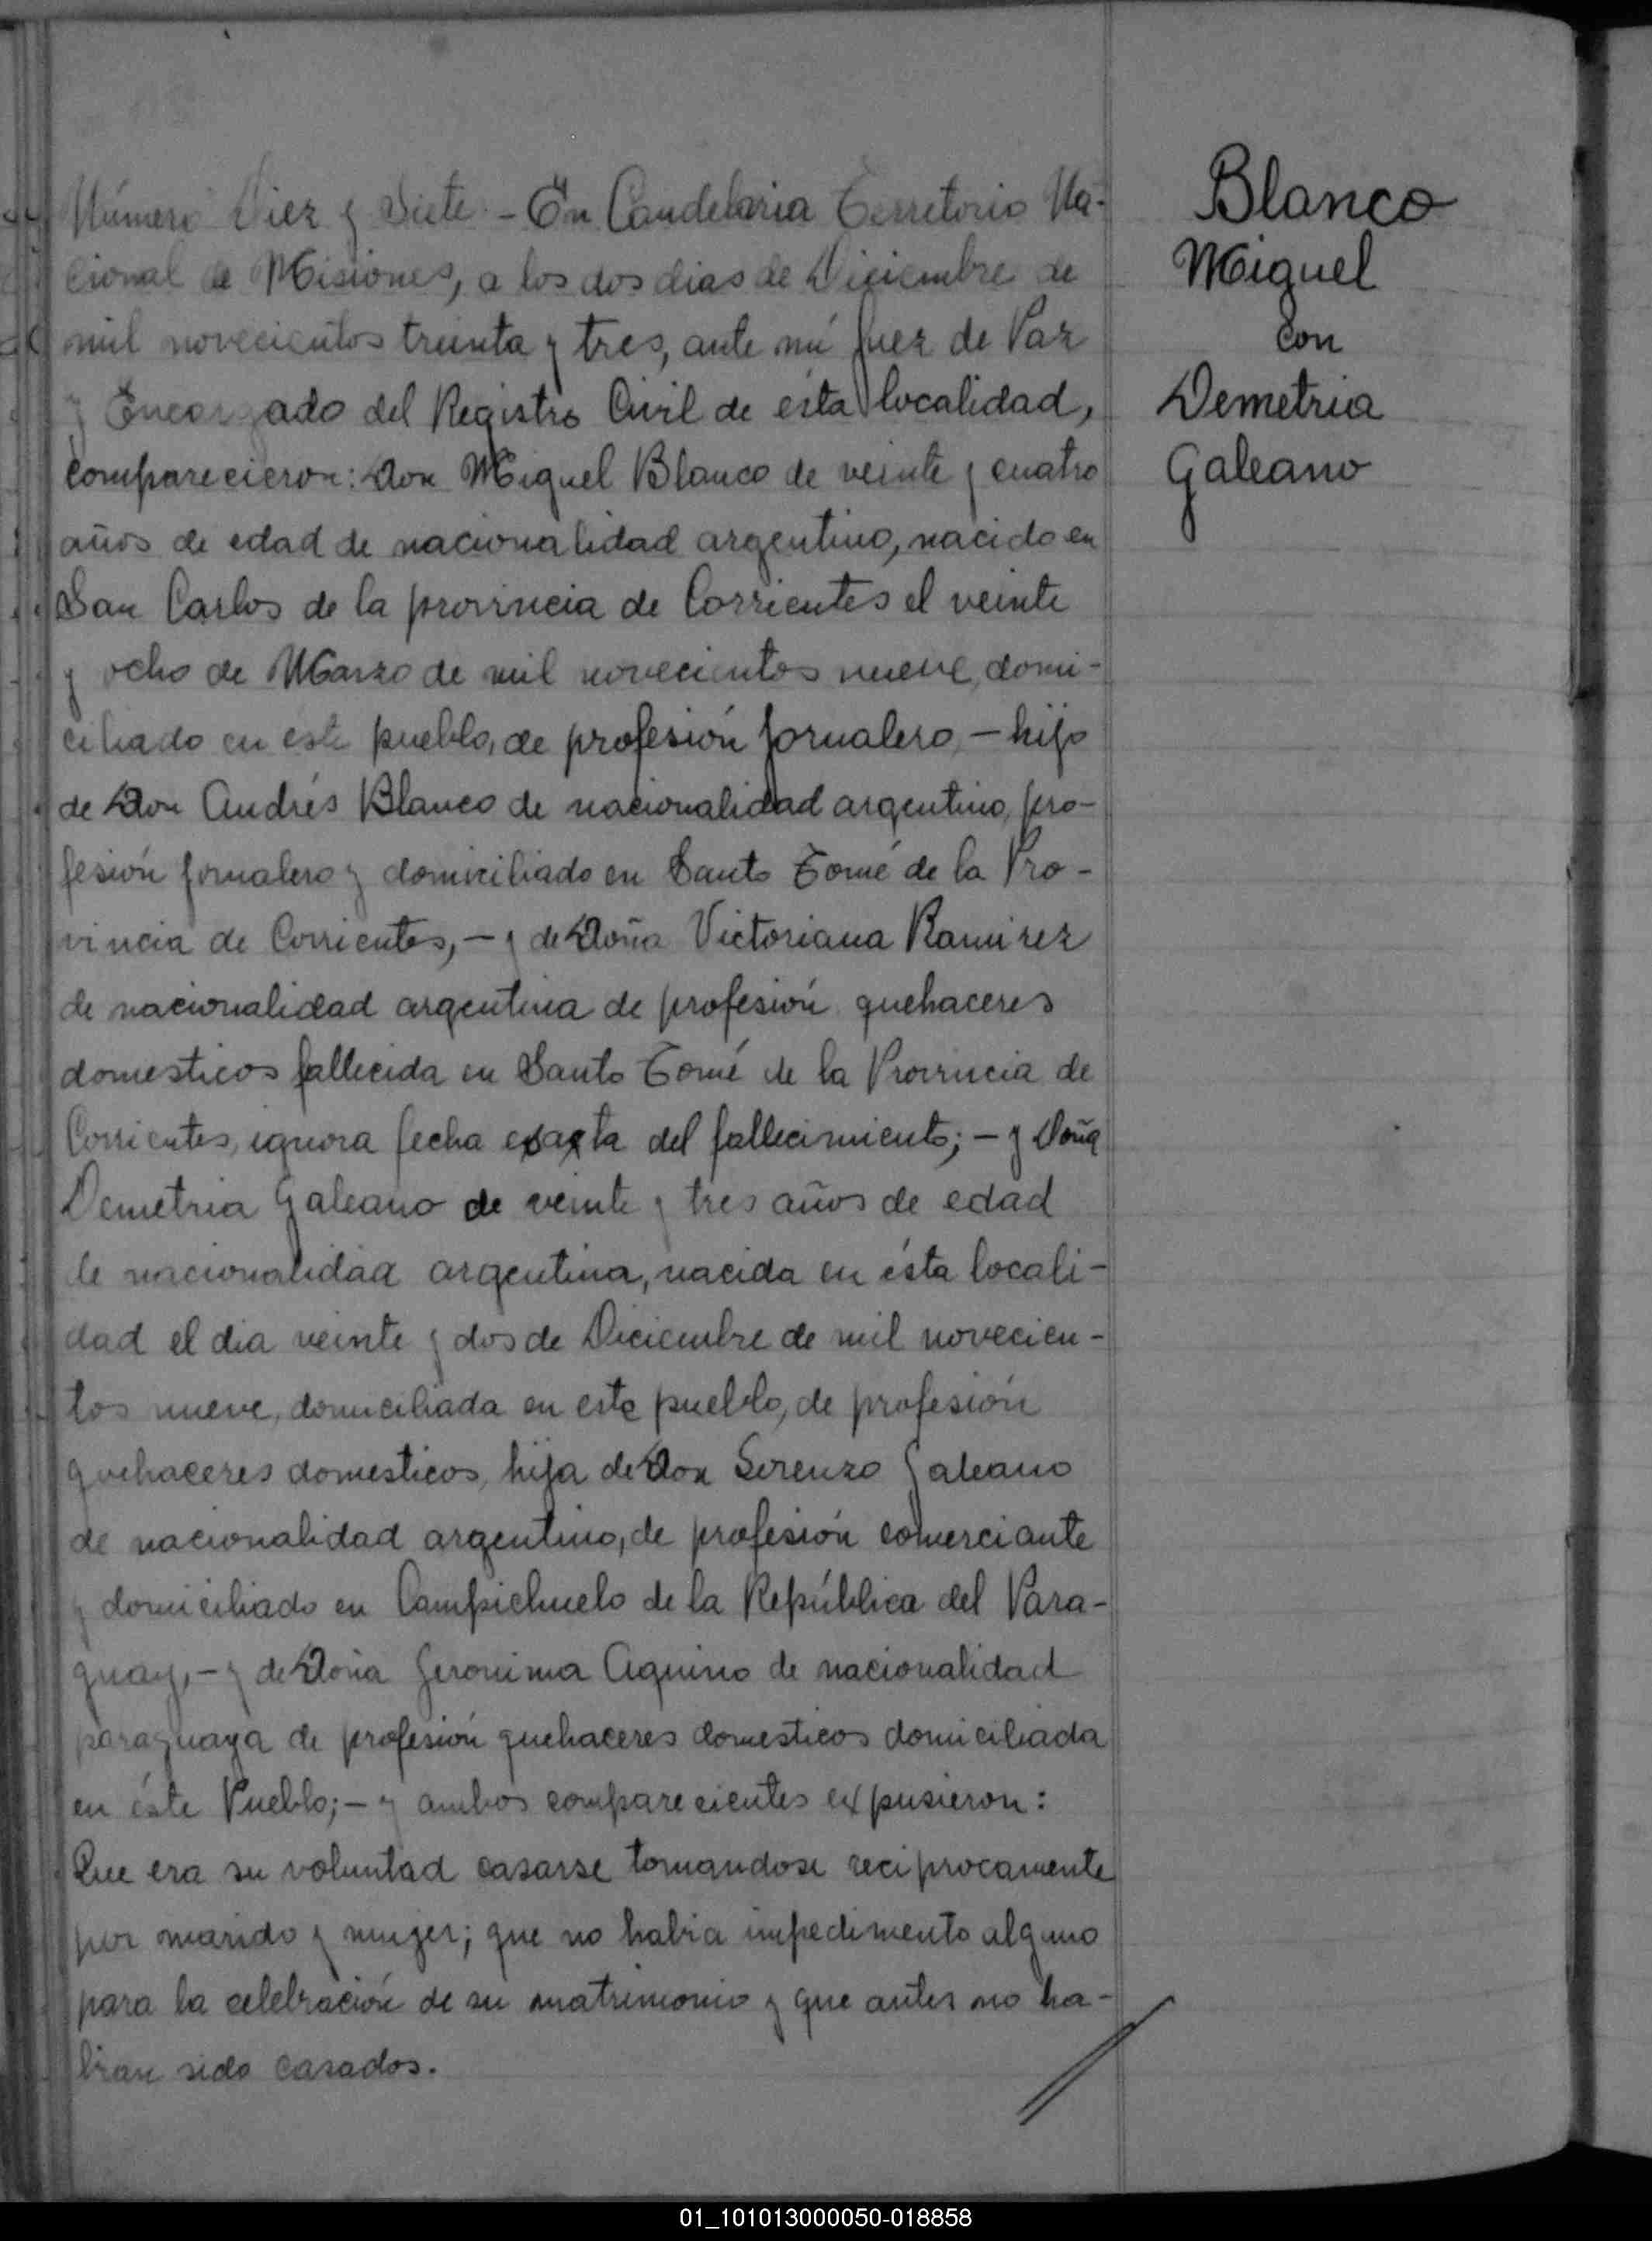 Número Diez y Siete - En Candelaria Territorio Na-
cional de Misiones, a los dos dias de Diciembre de
mil novecientos treinta y tres, ante mí Juez de Paz
y Encargado del Registro Civil de ésta localidad,
comparecieron: Don Miguel Blanco de veinte y cuatro
años de edad de nacionalidad argentino, nacido en
San Carlos de la provincia de Corrientes el veinte
y ocho de Marzo de mil novecientos nueve, domi-
ciliado en este pueblo, de profesión jornalero, - hijo
de Don Andrés Blanco de nacionalidad argentino, pro-
fesión jornalero y domiciliado en Santo Tomé de la Pro-
vincia de Corrientes, - y de Doña Victoriana Ramirez
de nacionalidad argentina de profesión quehaceres
domesticos fallecida en Santo Tomé de la Provincia de
Corrientes, ignora fecha exacta del fallecimiento; - y Doña
Demetria Galeano de veinte y tres años de edad
de nacionalidad argentina, nacida en ésta locali-
dad el dia veinte y dos de Diciembre de mil novecien-
tos nueve, domiciliada en este pueblo, de profesión
quehaceres domesticos, hija de Don Lorenzo Galeano
de nacionalidad argentino, de profesión comerciante
y domiciliado en Campichuelo de la República del Para-
guay, - y de Doña Geronima Aquino de nacionalidad
paraguaya de profesión quehaceres domesticos domiciliada
en éste Pueblo; - y ambos comparecientes expusieron:
Que era su voluntad casarse tomandose reciprocamente
por marido y mujer; que no habia impedimento alguno
para la celebración de su matrimonio y que antes no ha-
bian sido casados.
Blanco
Miguel
con
Demetria
Galeano
01_101013000050-018858